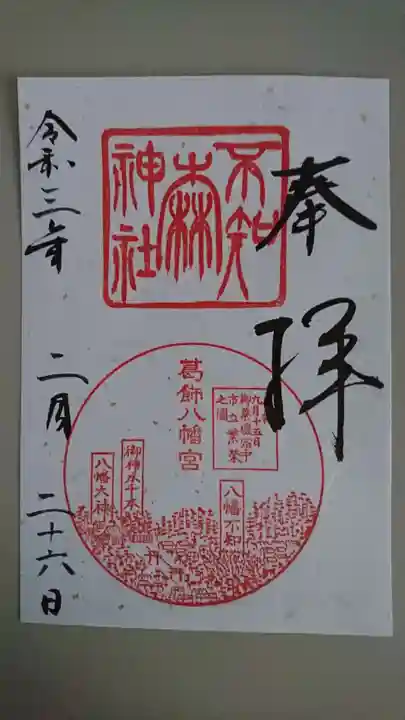 奉拝
不知
森
神社
葛飾八幡宮
九月十五日
市立繁栄
七園
八幡不知
御神木千本
八幡大神
令和三年 二月 二十六日